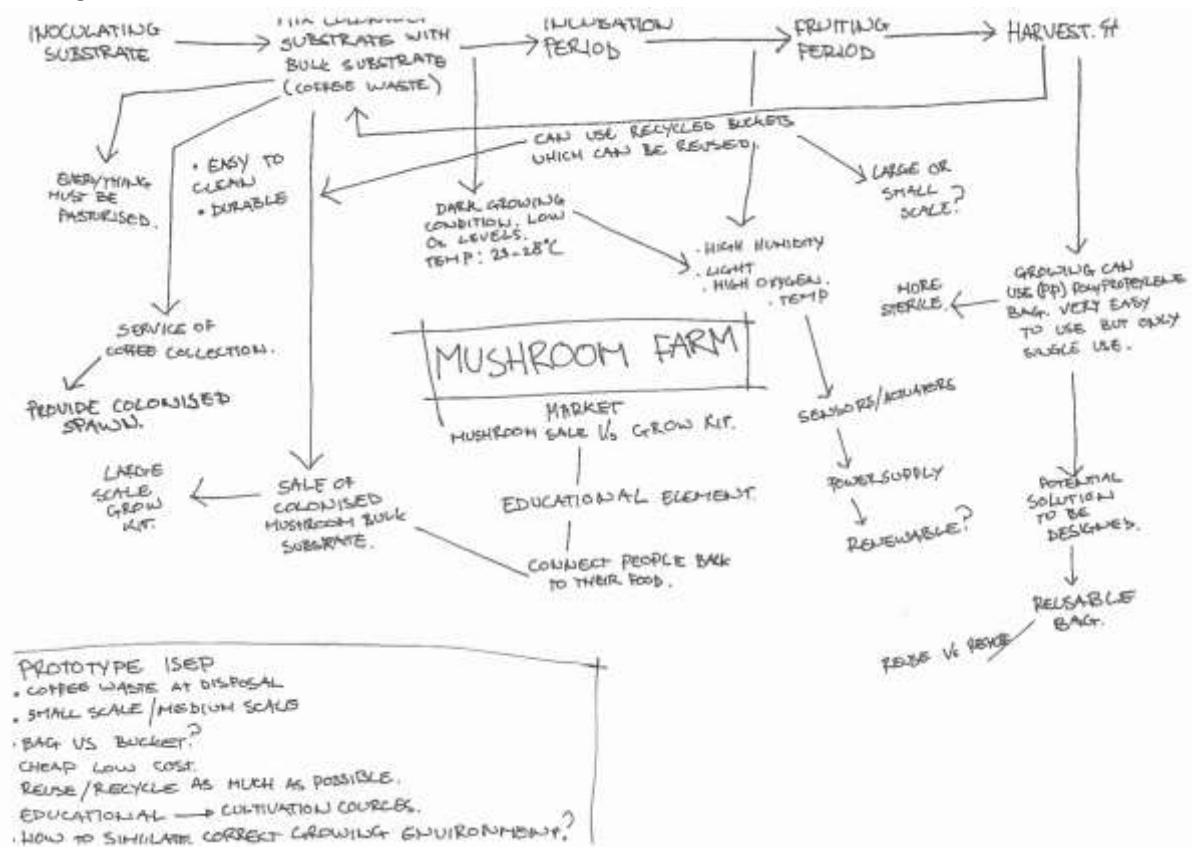 INOCULATING
SUBSTRATE
MIX COLONISED
SUBSTRATE WITH
BULK SUBSTRATE
(COFFEE WASTE)
INCUBATION
PERIOD
FRUITING
PERIOD
HARVEST.
EVERYTHING
MUST BE
PASTURISED.
• EASY TO
CLEAN
• DURABLE
CAN USE RECYCLED BUCKETS
WHICH CAN BE REUSED.
LARGE OR
SMALL
SCALE?
DARK GROWING
CONDITION, LOW
O₂ LEVELS.
TEMP: 23-28°C
• HIGH HUMIDITY
• LIGHT
• HIGH OXYGEN.
• TEMP
MORE
STERILE.
GROWING CAN
USE (PP) POLYPROPEYLENE
BAG. VERY EASY
TO USE BUT ONLY
SINGLE USE.
SERVICE OF
COFFEE COLLECTION.
PROVIDE COLONISED
SPAWN.
MUSHROOM FARM
MARKET
MUSHROOM SALE V/s GROW KIT.
SENSORS/ACTUATERS
LARGE
SCALE
GROW
KIT.
SALE OF
COLONISED
MUSHROOM BULK
SUBSTRATE.
EDUCATIONAL ELEMENT.
CONNECT PEOPLE BACK
TO THEIR FOOD.
POWERSUPPLY
RENEWABLE?
POTENTIAL
SOLUTION
TO BE
DESIGNED.
REUSABLE
BAG.
REUSE Vs
PROTOTYPE ISEP
• COFFEE WASTE AT DISPOSAL
• SMALL SCALE/MEDIUM SCALE
• BAG VS BUCKET?
CHEAP LOW COST.
REUSE/RECYCLE AS MUCH AS POSSIBLE.
EDUCATIONAL → CULTIVATION COURCES.
• HOW TO SIMULATE CORRECT GROWING ENVIRONMENT?